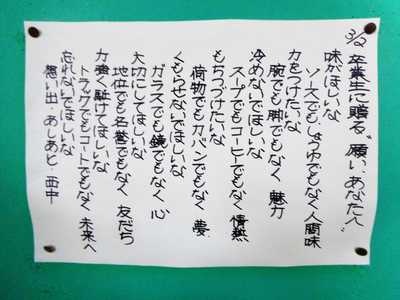 3/2 卒業生に贈る〝願い、あなた人〟
味がほしいな
ソースでもしょうゆでもなく人間味
力をつけたいな
腕でも脚でもなく 魅力
冷めないでほしいな
スープでもコーヒーでもなく 情熱
もちつづけたいな
荷物でもカバンでもなく 夢
くもらせないでほしいな
ガラスでも鏡でもなく 心
大切にしてほしいな
地位でも名誉でもなく 友だち
力強く駈けてほしいな
トラックでもコートでもなく 未来へ
忘れないでほしいな
想い出・あしあと・西中